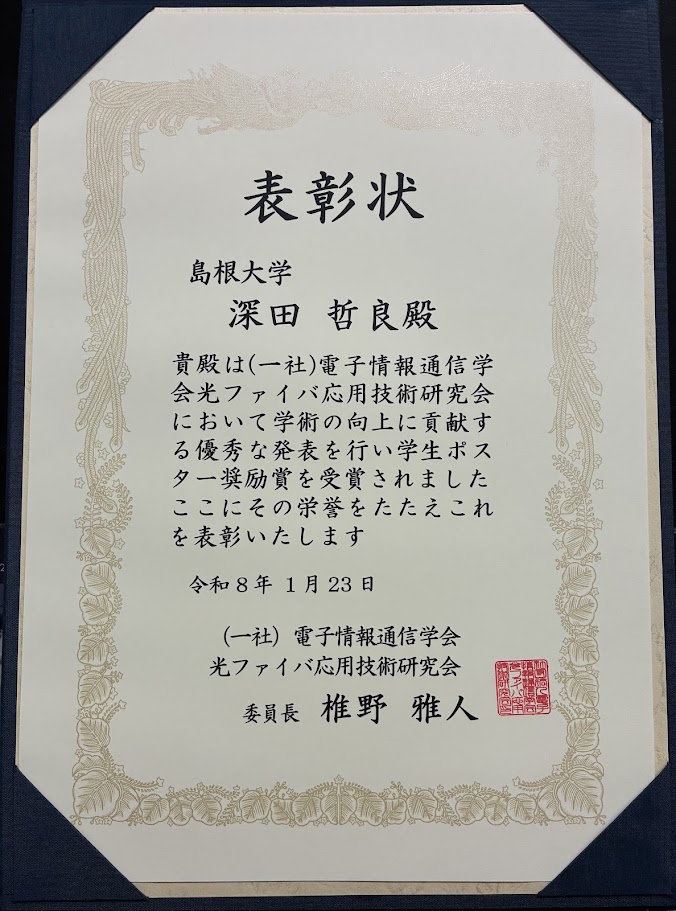 表彰状
島根大学
深田 哲良殿
貴殿は(一社)電子情報通信学
会光ファイバ応用技術研究会
において学術の向上に貢献す
る優秀な発表を行い学生ポス
ター奨励賞を受賞されました
ここにその栄誉をたたえこれ
を表彰いたします
令和8年 1月23日
(一社) 電子情報通信学会
光ファイバ応用技術研究会
委員長 椎野 雅人